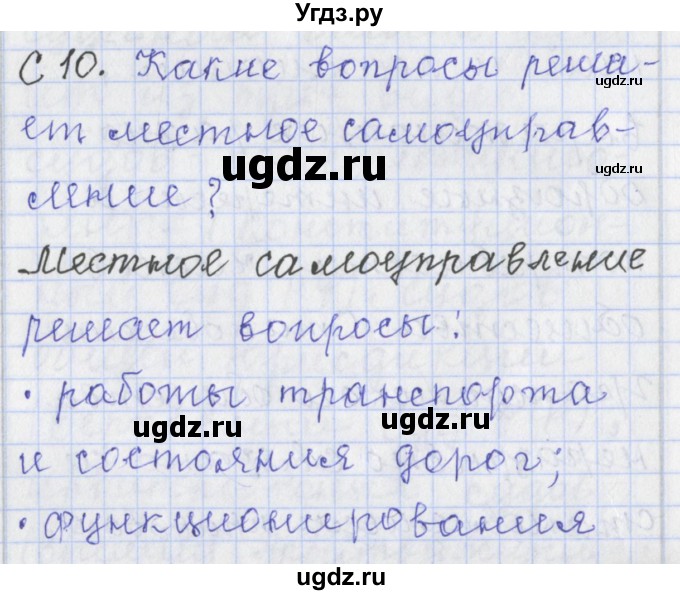 Угдз.ру
С 10. Какие вопросы реша-
ет местное самоуправ-
ugdz.ru
ление?
Местное самоуправление
решает вопросы:
• работы транспорта
ugdz.ru ugdz.ru
и состояния дорог;
• функционирования
ugdz.ru